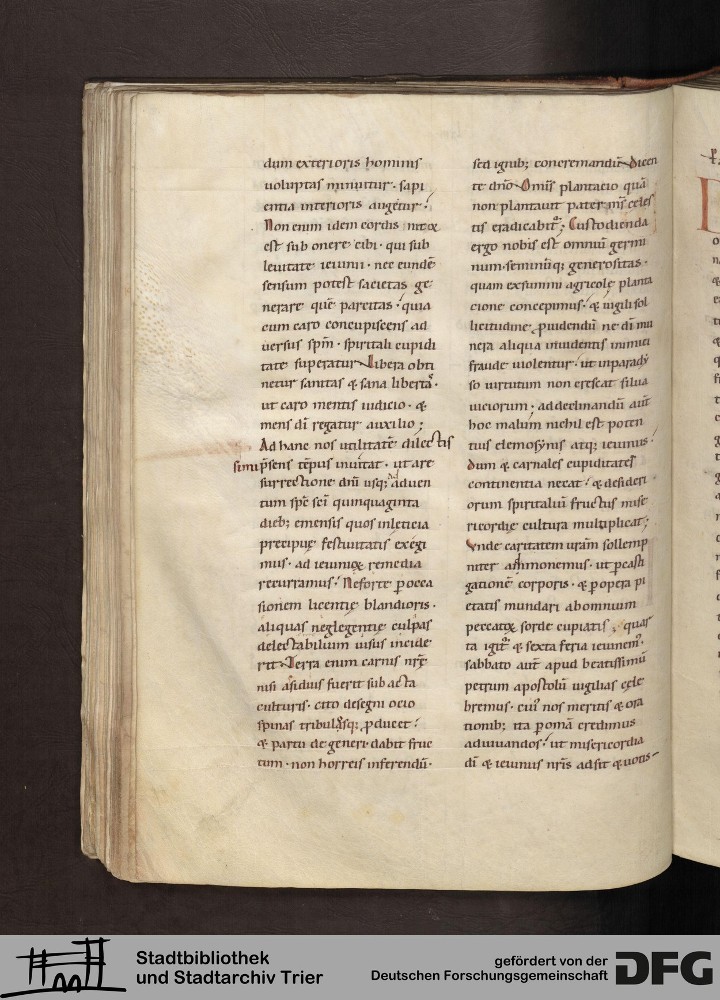 dum exterioris hominis
uoluptas minuitur · sapi
entia interioris augetur ·
Non enim idem cordis intox
est sub onere cibi · qui sub
leuitate ieiunii · nec eundē
sensum potest sacietas ge
nerare quē parcitas · quia
cum caro concupiscens ad
uersus spm̄ · spiritali cupidi
tate superatur · Libera obti
netur sanitas & sana libertas ·
ut caro mentis iudicio · &
mens dī regatur auxilio ;
Ad hanc nos utilitatē dilectis
simi p̄sens tēpus inuitat · ut a re
surrectione dn̄i usq; ad aduen
tum sp̄c sc̄i quinquaginta
dieb; emensis quos in leticia
precipuę festiuitatis exegi
mus · ad ieiunioꝝ remedia
recurramus · Ne forte p occa
sionem licentię blandioris ·
aliquas neglegentię culpas
delectabilium uisus incide
rit · Terra enim carnis nr̄ę
nisi asiduis fuerit subacta
culturis · cito de segni ocio
spinas tribulosq; p̄ducet ·
& partu degeneri · dabit fruc
tum · non horreis inferendū ·
sed ignib; concremandū · Dicen
te dn̄o · Omīs plantacio quā
non plantauit pater ms̄ celes
tis eradicabit᷑ ; Custodienda
ergo nobis est omniū germi
num · seminūq; generositas ·
quam ex summi agricolę planta
cione concepimus · & uigili sol
licitudine ꝓuidendū ne dī mu
nera aliqua inuidentis inimici
fraude uiolentur · ut in parady
so uirtutum non crescat silua
uiciorum ; ad declinandū aut̄
hoc malum nichil est poten
tius elemosynis atq; ieiuniis ·
dum & carnales cupiditates
continentia necat · & desideri
orum spiritaliū fructus mise
ricordię cultura multiplicat ;
Vnde caritatem uram̄ sollemp
niter ammonemus · ut p casti
gationē corporis · & p opera pi
etatis mundari ab omnium
peccatoꝝ sorde cupiatis · quar
ta igit᷑ & sexta feria ieiunem᷒ ·
sabbato aut̄ apud beatissimū
petrum apostolū uigilias cele
bremus · cui᷒ nos meritis & ora
tionib; ita p omā credimus
adiuuandos · ut misericordia
dī & ieiuniis nr̄is adsit & uotis
Stadtbibliothek
und Stadtarchiv Trier
gefördert von der
Deutschen Forschungsgemeinschaft
DFG